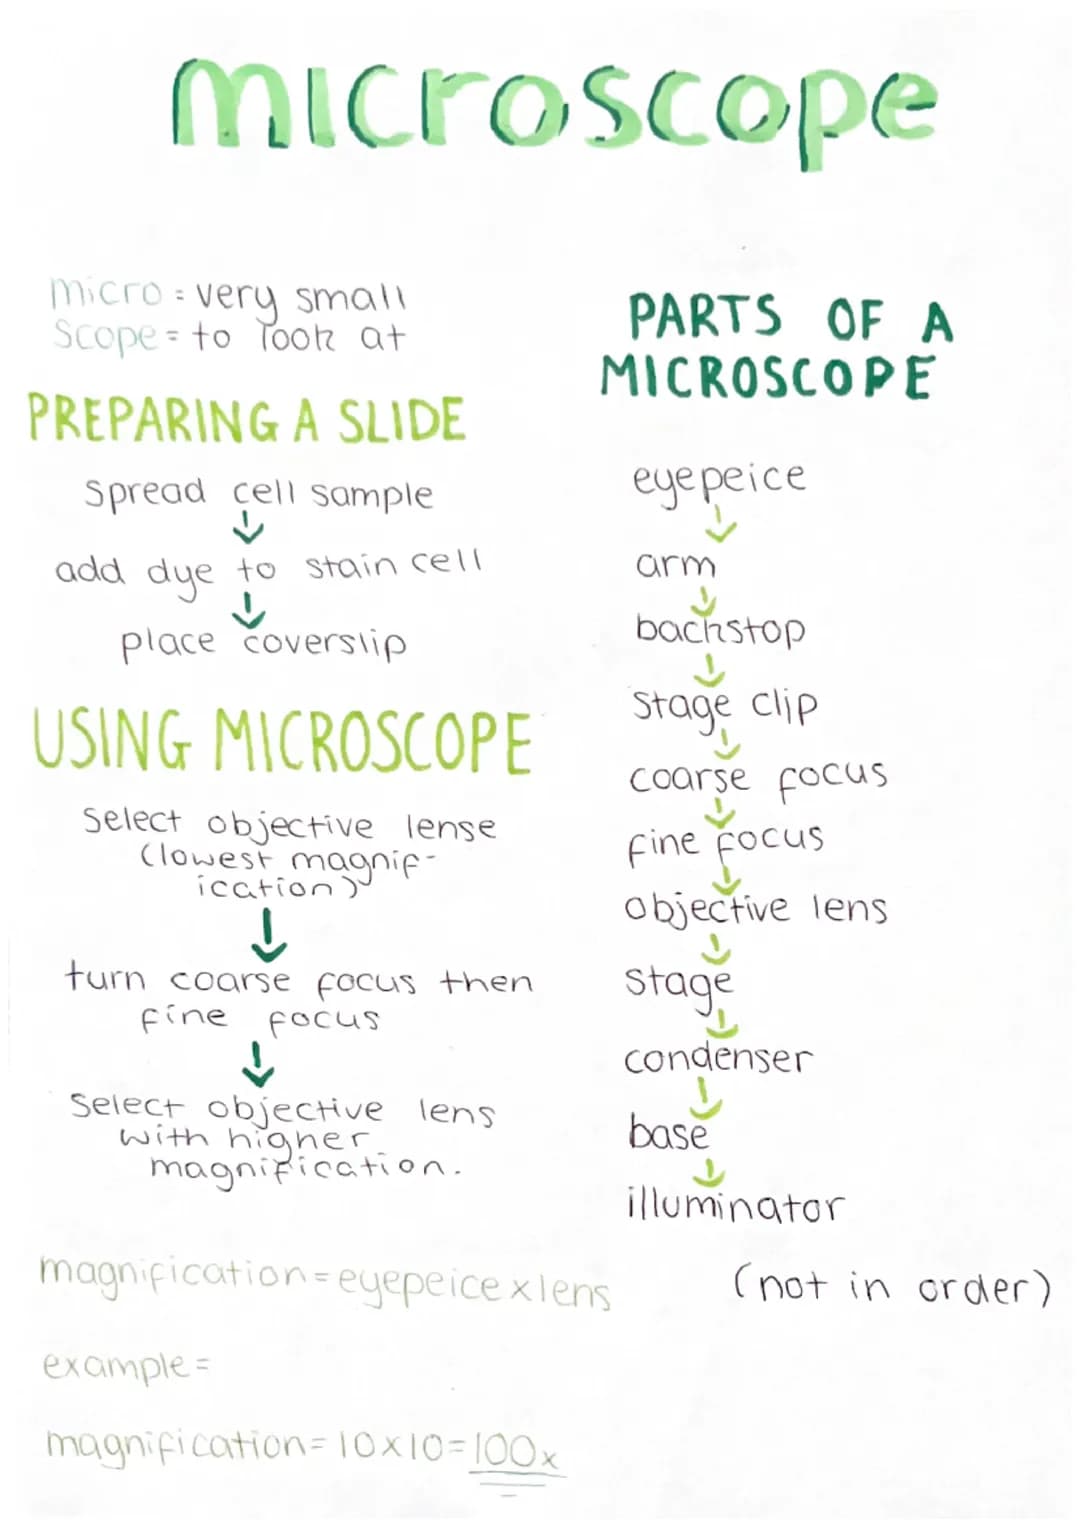 microscope
micro = very small
Scope = to look at
PREPARING A SLIDE
Spread cell sample
add dye to stain cell
place coverslip
USING MICROSCOPE
Select objective lense
(lowest magnif-
ication)
turn coarse focus then
fine focus
Select objective lens
with higher
magnification.
magnification = eyepeice x lens
example =
magnification = 10 x 10 = 100x
PARTS OF A
MICROSCOPE
eyepeice
arm
backstop
Stage clip
coarse focus
fine focus
objective lens
Stage
condenser
base
illuminator
(not in order)